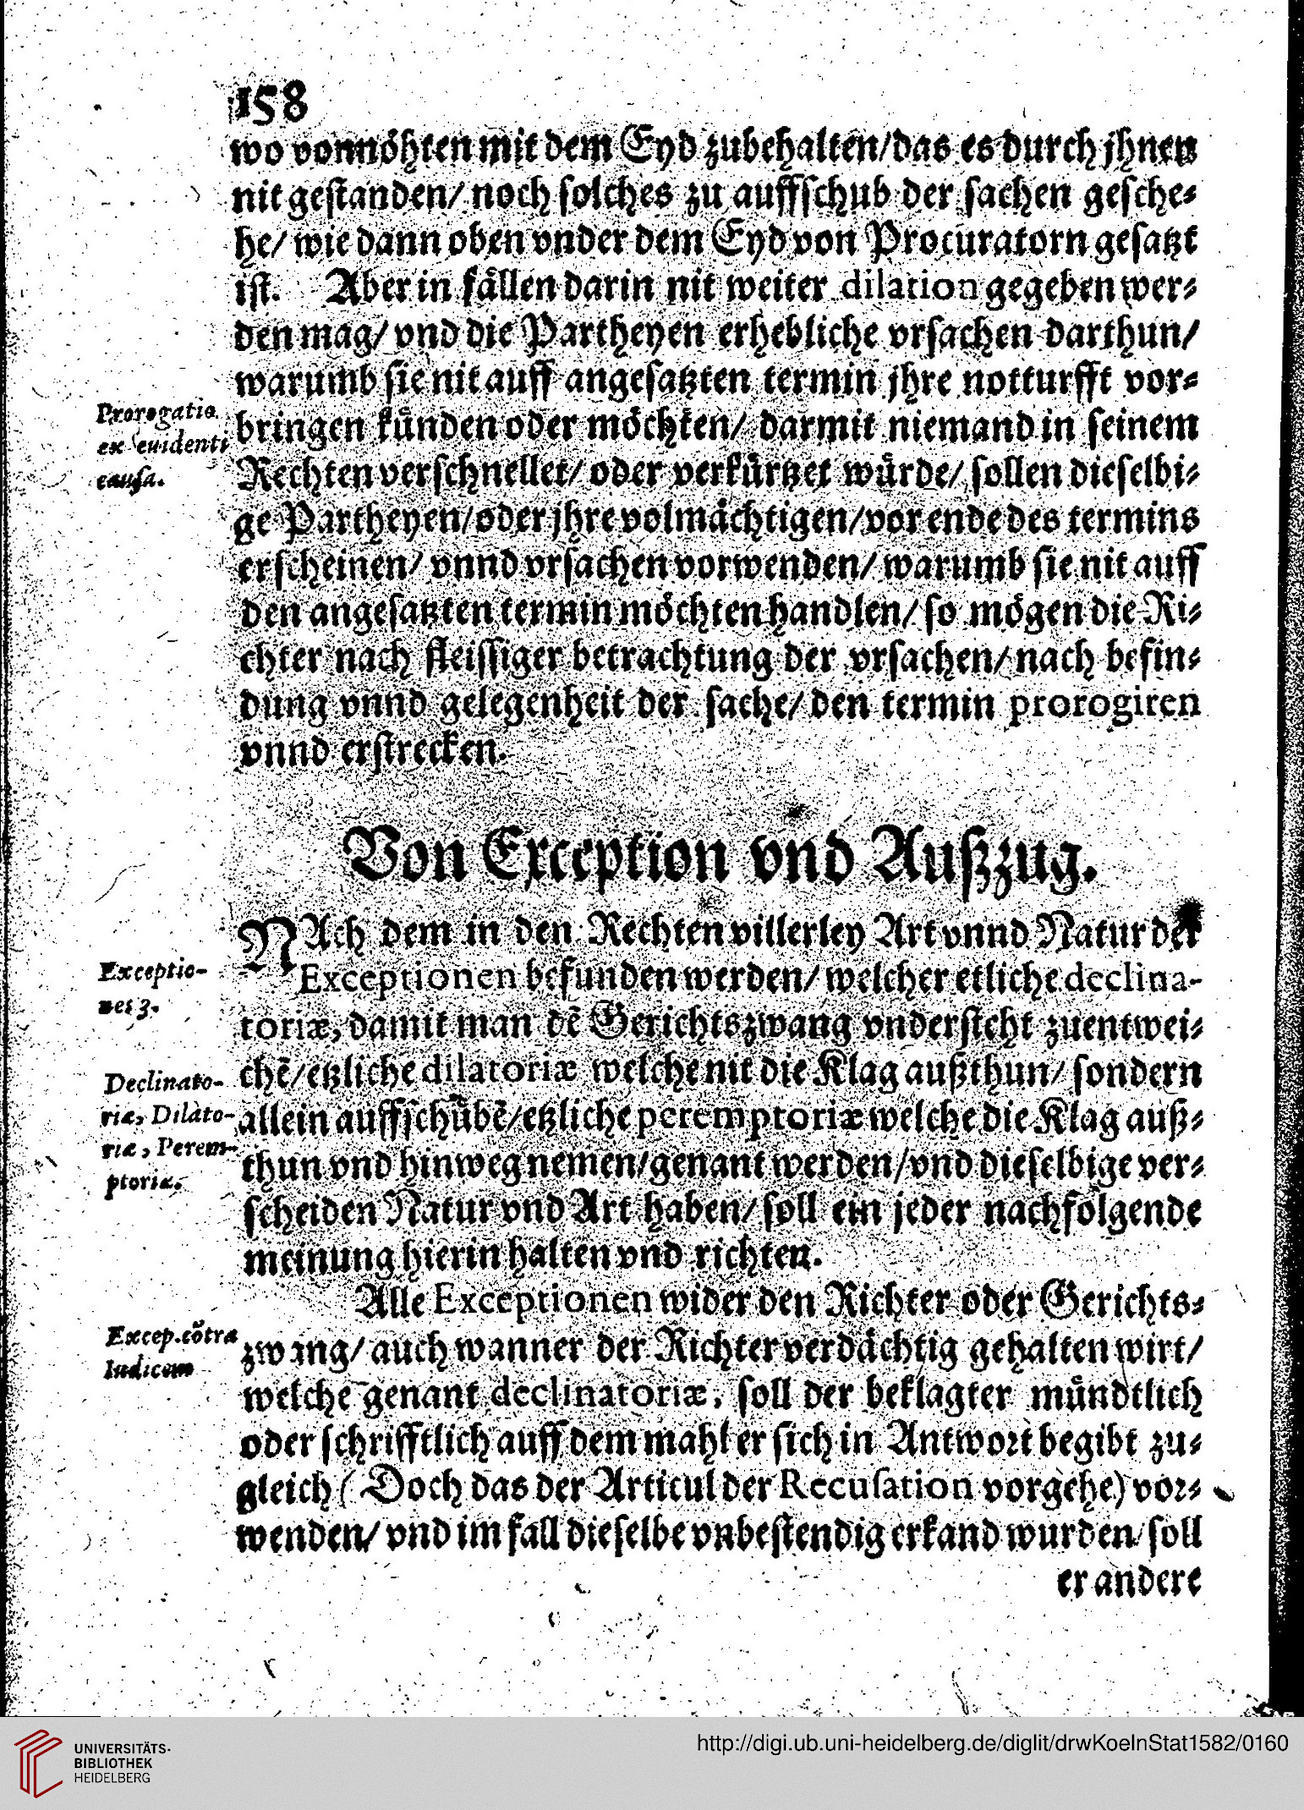 158
wo vonnöhten mit dem Eyd zubehalten/das es durch jhnen
nit gestanden/ noch solches zu auffschub der sachen gesche⸗
he/ wie dann oben vnder dem Eyd von Procuratorn gesatzt
ist. Aber in fällen darin nit weiter dilation gegeben wer⸗
den mag/ vnd die Partheyen erhebliche vrsachen darthun/
warumb sie nit auff angesatzten termin jhre notturfft vor⸗
Prorogatio
ex euidenti
causa.
bringen künden oder möchten/ darmit niemand in seinem
Rechten verschnellet/ oder verkürtzet würde/ sollen dieselbi⸗
ge Partheyen/oder jhre volmächtigen/vor ende des termins
erscheinen/ vnnd vrsachen vorwenden/ warumb sie nit auff
den angesatzten termin möchten handlen/ so mögen die Ri⸗
chter nach fleissiger betrachtung der vrsachen/ nach befin⸗
dung vnnd gelegenheit der sache/ den termin prorogiren
vnnd erstrecken.
Von Exception vnd Außzug.
NAch dem in den Rechten villerley Art vnnd Natur der
Exceptio-
nes 3.
Exceptionen befunden werden/ welcher etliche declina-
toriæ, damit man dē Gerichtszwang vndersteht zuentwei⸗
Declinato-
riæ, Dilato-
riæ, Perem-
ptoriæ.
chē/etzliche dilatoriæ welche nit die Klag außthun/ sondern
allein auffschübē/etzliche peremptoriæ welche die Klag auß⸗
thun vnd hinweg nemen/genant werden/vnd dieselbige ver⸗
scheiden Natur vnd Art haben/ soll ein jeder nachfolgende
meinung hierin halten vnd richten.
Alle Exceptionen wider den Richter oder Gerichts⸗
Excep. cōtra
Iudicem
zwang/ auch wanner der Richter verdächtig gehalten wirt/
welche genant declinatoriæ, soll der beklagter mündtlich
oder schrifftlich auff dem mahl er sich in Antwort begibt zu⸗
gleich ( Doch das der Articul der Recusation vorgehe) vor⸗
wenden/ vnd im fall dieselbe vnbestendig erkand wurden/ soll
er andere
UNIVERSITÄTS-
BIBLIOTHEK
HEIDELBERG
http://digi.ub.uni-heidelberg.de/diglit/drwKoelnStat1582/0160